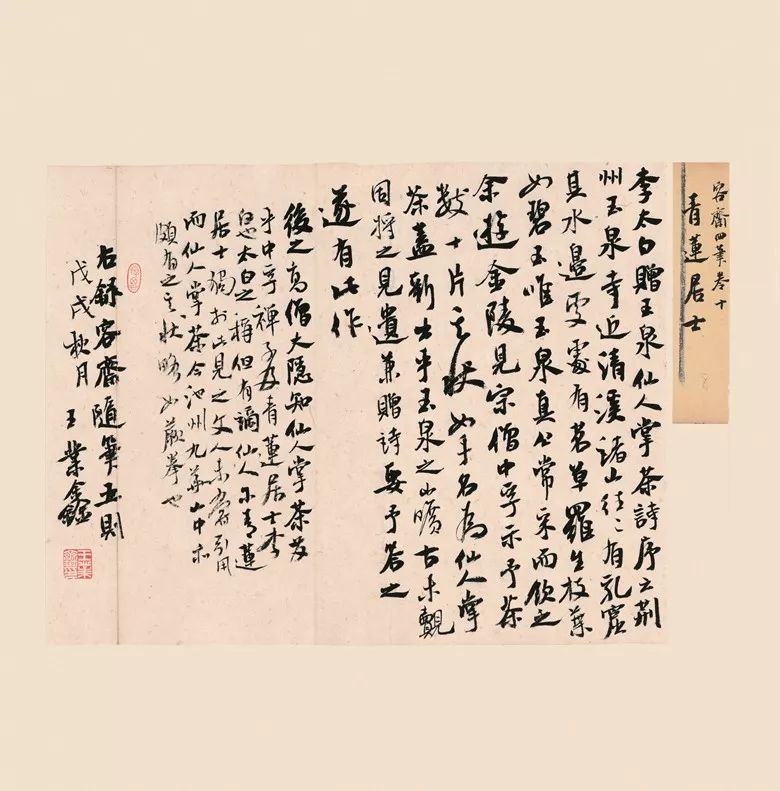 容齋四筆卷十
青蓮居士
李太白贈玉泉仙人掌茶詩序云荊
州玉泉寺近清溪諸山往々有乳窟
其水邊處處有茗草羅生枝葉
如碧玉唯玉泉真公常采而飲之
余遊金陵見宗僧中孚示予茶
數十片其狀如手名為仙人掌
茶蓋新出乎玉泉之山曠古未覿
因持之見遺兼贈詩要予答之
遂有此作
後之高僧大隱知仙人掌茶發
乎中孚禪子及青蓮居士李
白也太白之稱但有謫仙人爾青蓮
居士獨於此見之文人未嘗引用
而仙人掌茶今池州九華山中亦
頗有之其狀略如蕨拳也
右錄容齋隨筆五則
戊戌秋月 王業鑫